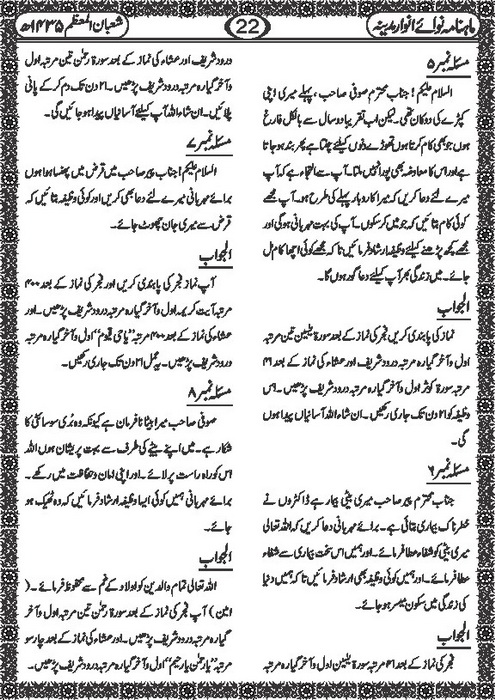 ماہنامہ نوائے انوار مدینہ
22
شعبان المعظم ۱۴۳۵ھ
مسئلہ نمبر ۵
السلام علیکم! جناب محترم صوفی صاحب، پہلے میری اپنی
کپڑے کی دوکان تھی۔ لیکن اب تقریباً دو سال سے بالکل فارغ
ہوں جو بھی کام کرتا ہوں تھوڑے دنوں کیلئے چلتا ہے پھر بند ہو جاتا
ہے اور اس کا معاوضہ بھی پورا نہیں ملتا۔ آپ سے التجاء ہے کہ آپ
میرے لئے دعا کریں کہ میرا کاروبار پہلے کی طرح ہو۔ آپ مجھے
کوئی کام بتائیں کہ جو میں کر سکوں۔ آپ کی بہت مہربانی ہوگی اور
مجھے کچھ پڑھنے کیلئے وظیفہ ارشاد فرمائیں تا کہ مجھے کوئی اچھا کام مل
جائے۔ میں زندگی بھر آپ کیلئے دعا گو ہوں گا۔
الجواب
نماز کی پابندی کریں فجر کی نماز کے بعد سورۃ یٰسین تین مرتبہ
اول و آخر گیارہ مرتبہ درود شریف اور عشاء کی نماز کے بعد ۴۱
مرتبہ سورۃ کوثر اول و آخر گیارہ مرتبہ درود شریف پڑھیں۔ اس
وظیفہ کو ۲۱ دن تک جاری رکھیں۔ ان شاء اللہ آسانیاں پیدا ہوں
گی۔
مسئلہ نمبر ۶
جناب محترم پیر صاحب میری بیٹی بیمار ہے ڈاکٹروں نے
خطرناک بیماری بتائی ہے۔ برائے مہربانی دعا کریں کہ اللہ تعالیٰ
میری بیٹی کو شفاء عطا فرمائے۔ اور ہمیں اس سخت بیماری سے شفاء
عطا فرمائے۔ اور ہمیں کوئی وظیفہ بھی ارشاد فرمائیں تا کہ ہمیں دنیا
کی زندگی میں سکون میسر ہو جائے۔
الجواب
فجر کی نماز کے بعد ۴۱ مرتبہ سورۃ یٰسین اول و آخر گیارہ مرتبہ
درود شریف اور عشاء کی نماز کے بعد سورۃ رحمٰن تین مرتبہ اول
و آخر گیارہ مرتبہ درود شریف پڑھیں۔ ۲۱ دن تک دم کر کے پانی
پلائیں۔ ان شاء اللہ آپ کیلئے آسانیاں پیدا ہو جائیں گی۔
مسئلہ نمبر ۷
السلام علیکم! جناب پیر صاحب میں قرض میں پھنسا ہوا ہوں
برائے مہربانی میرے لئے دعا بھی کریں اور کوئی وظیفہ بتائیں کہ
قرض سے میری جان چھوٹ جائے۔
الجواب
آپ نماز فجر کی پابندی کریں اور فجر کی نماز کے بعد ۳۰۰
مرتبہ آیت کریمہ۔ اول و آخر گیارہ مرتبہ درود شریف پڑھیں۔ اور
عشاء کی نماز کے بعد ۳۰۰ مرتبہ ’’یا حی یا قیوم‘‘ اول و آخر گیارہ مرتبہ
درود شریف پڑھیں۔ یہ عمل ۲۱ دن تک جاری رکھیں۔
مسئلہ نمبر ۸
صوفی صاحب میرا بیٹا نافرمان ہے کیونکہ وہ بُری سوسائٹی کا
شکار ہے۔ میں اپنے بیٹے کی طرف سے بہت پریشان ہوں اللہ
اس کو راہ راست پر لائے۔ اور اپنی امان و حفاظت میں رکھے۔
برائے مہربانی ہمیں کوئی ایسا وظیفہ ارشاد فرمائیں کہ وہ ٹھیک ہو
جائے۔
الجواب
اللہ تعالیٰ تمام والدین کو اولاد کے غم سے محفوظ فرمائے۔ (
امین) آپ فجر کی نماز کے بعد سورۃ رحمٰن تین مرتبہ اول و آخر
گیارہ مرتبہ درود شریف پڑھیں۔ اور عشاء کی نماز کے بعد چار سو
مرتبہ ’’یا رحمٰن یا رحیم‘‘ اول و آخر گیارہ مرتبہ درود شریف پڑھیں۔